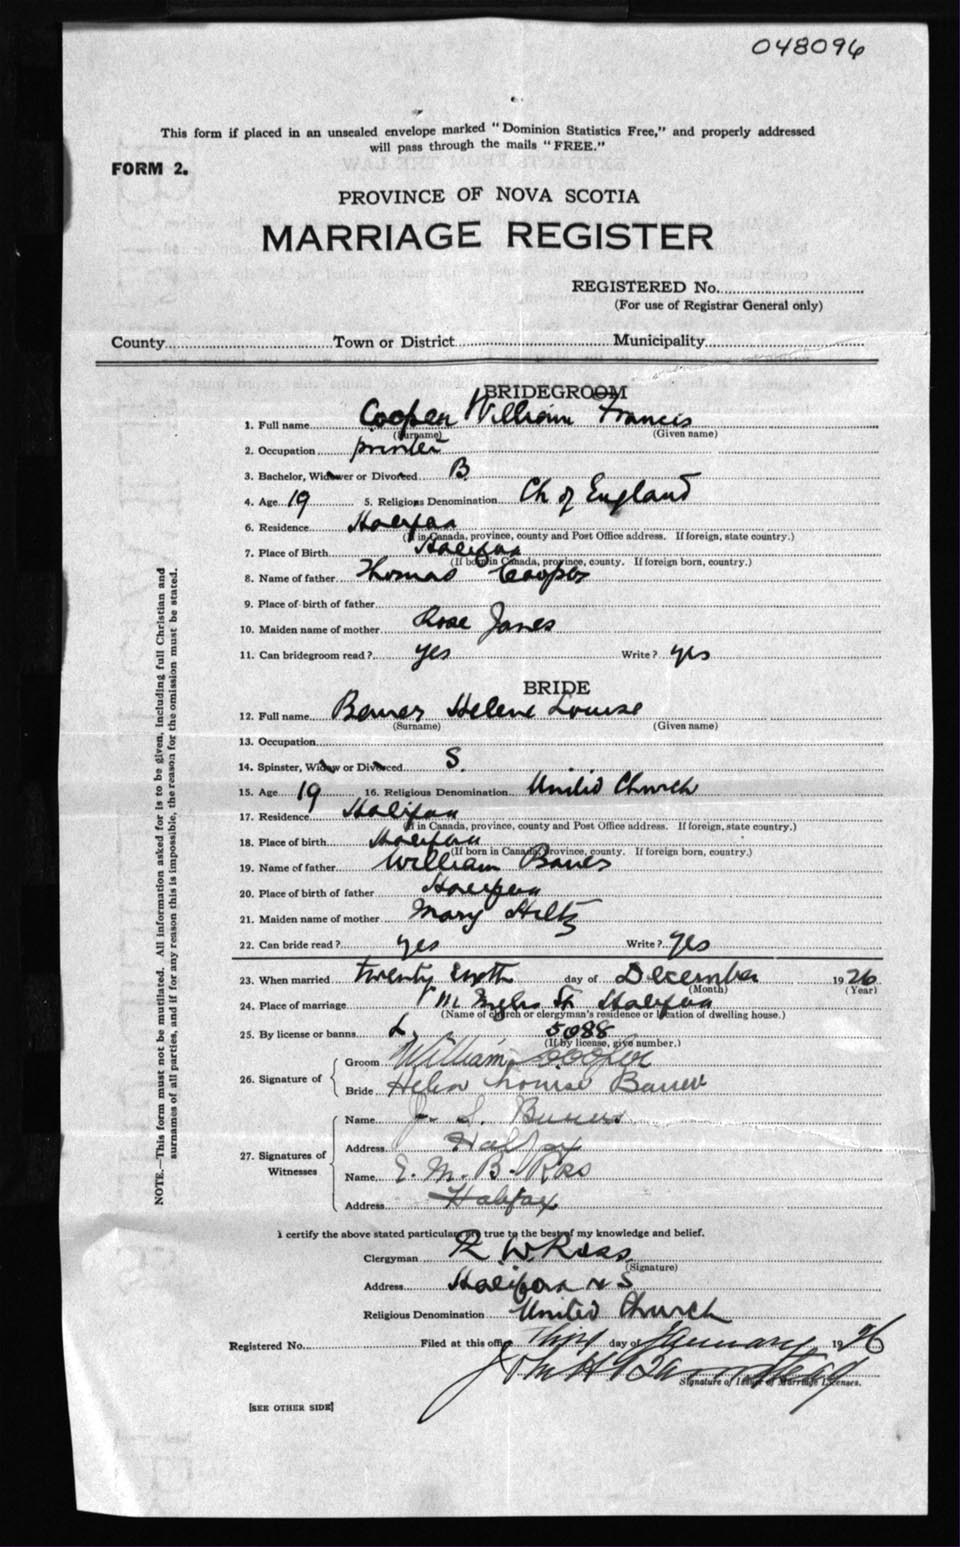 048096
This form if placed in an unsealed envelope marked "Dominion Statistics Free," and properly addressed
will pass through the mails "FREE."
FORM 2.
PROVINCE OF NOVA SCOTIA
MARRIAGE REGISTER
REGISTERED No.
(For use of Registrar General only)
County Town or District Municipality
BRIDEGROOM
1. Full name Cooper William Francis
(Surname) (Given name)
2. Occupation printer
3. Bachelor, Widower or Divorced B.
4. Age 19 5. Religious Denomination Ch of England
6. Residence Halifax
(If in Canada, province, county and Post Office address. If foreign, state country.)
7. Place of Birth Halifax
(If born in Canada, province, county. If foreign born, country.)
8. Name of father Thomas Cooper
9. Place of birth of father
10. Maiden name of mother Rose Janes
11. Can bridegroom read? yes Write? yes
BRIDE
12. Full name Helene Louise
(Surname) (Given name)
13. Occupation
14. Spinster, Widow or Divorced S.
15. Age 19 16. Religious Denomination United Church
17. Residence Halifax
(If in Canada, province, county and Post Office address. If foreign, state country.)
18. Place of birth Halifax
(If born in Canada, province, county. If foreign born, country.)
19. Name of father William
20. Place of birth of father Halifax
21. Maiden name of mother Mary Hiltz
22. Can bride read? yes Write? yes
23. When married twenty day of December 1926
(Month) (Year)
24. Place of marriage St Halifax
(Name of church or clergyman's residence or location of dwelling house.)
25. By license or banns L. 5088
(If by license, give number.)
26. Signature of
Groom William Cooper
Bride Helen Louise
27. Signatures of Witnesses
Name
Address Halifax
Name E. M. B. Ross
Address Halifax
I certify the above stated particulars are true to the best of my knowledge and belief.
Clergyman R. W. Ross
(Signature)
Address Halifax N S
Religious Denomination United Church
Registered No. Filed at this office day of January 1926
Signature of Issuer of Marriage Licenses.
[SEE OTHER SIDE]
NOTE.—This form must not be mutilated. All information asked for is to be given, including full Christian and
surnames of all parties, and if for any reason this is impossible, the reason for the omission must be stated.